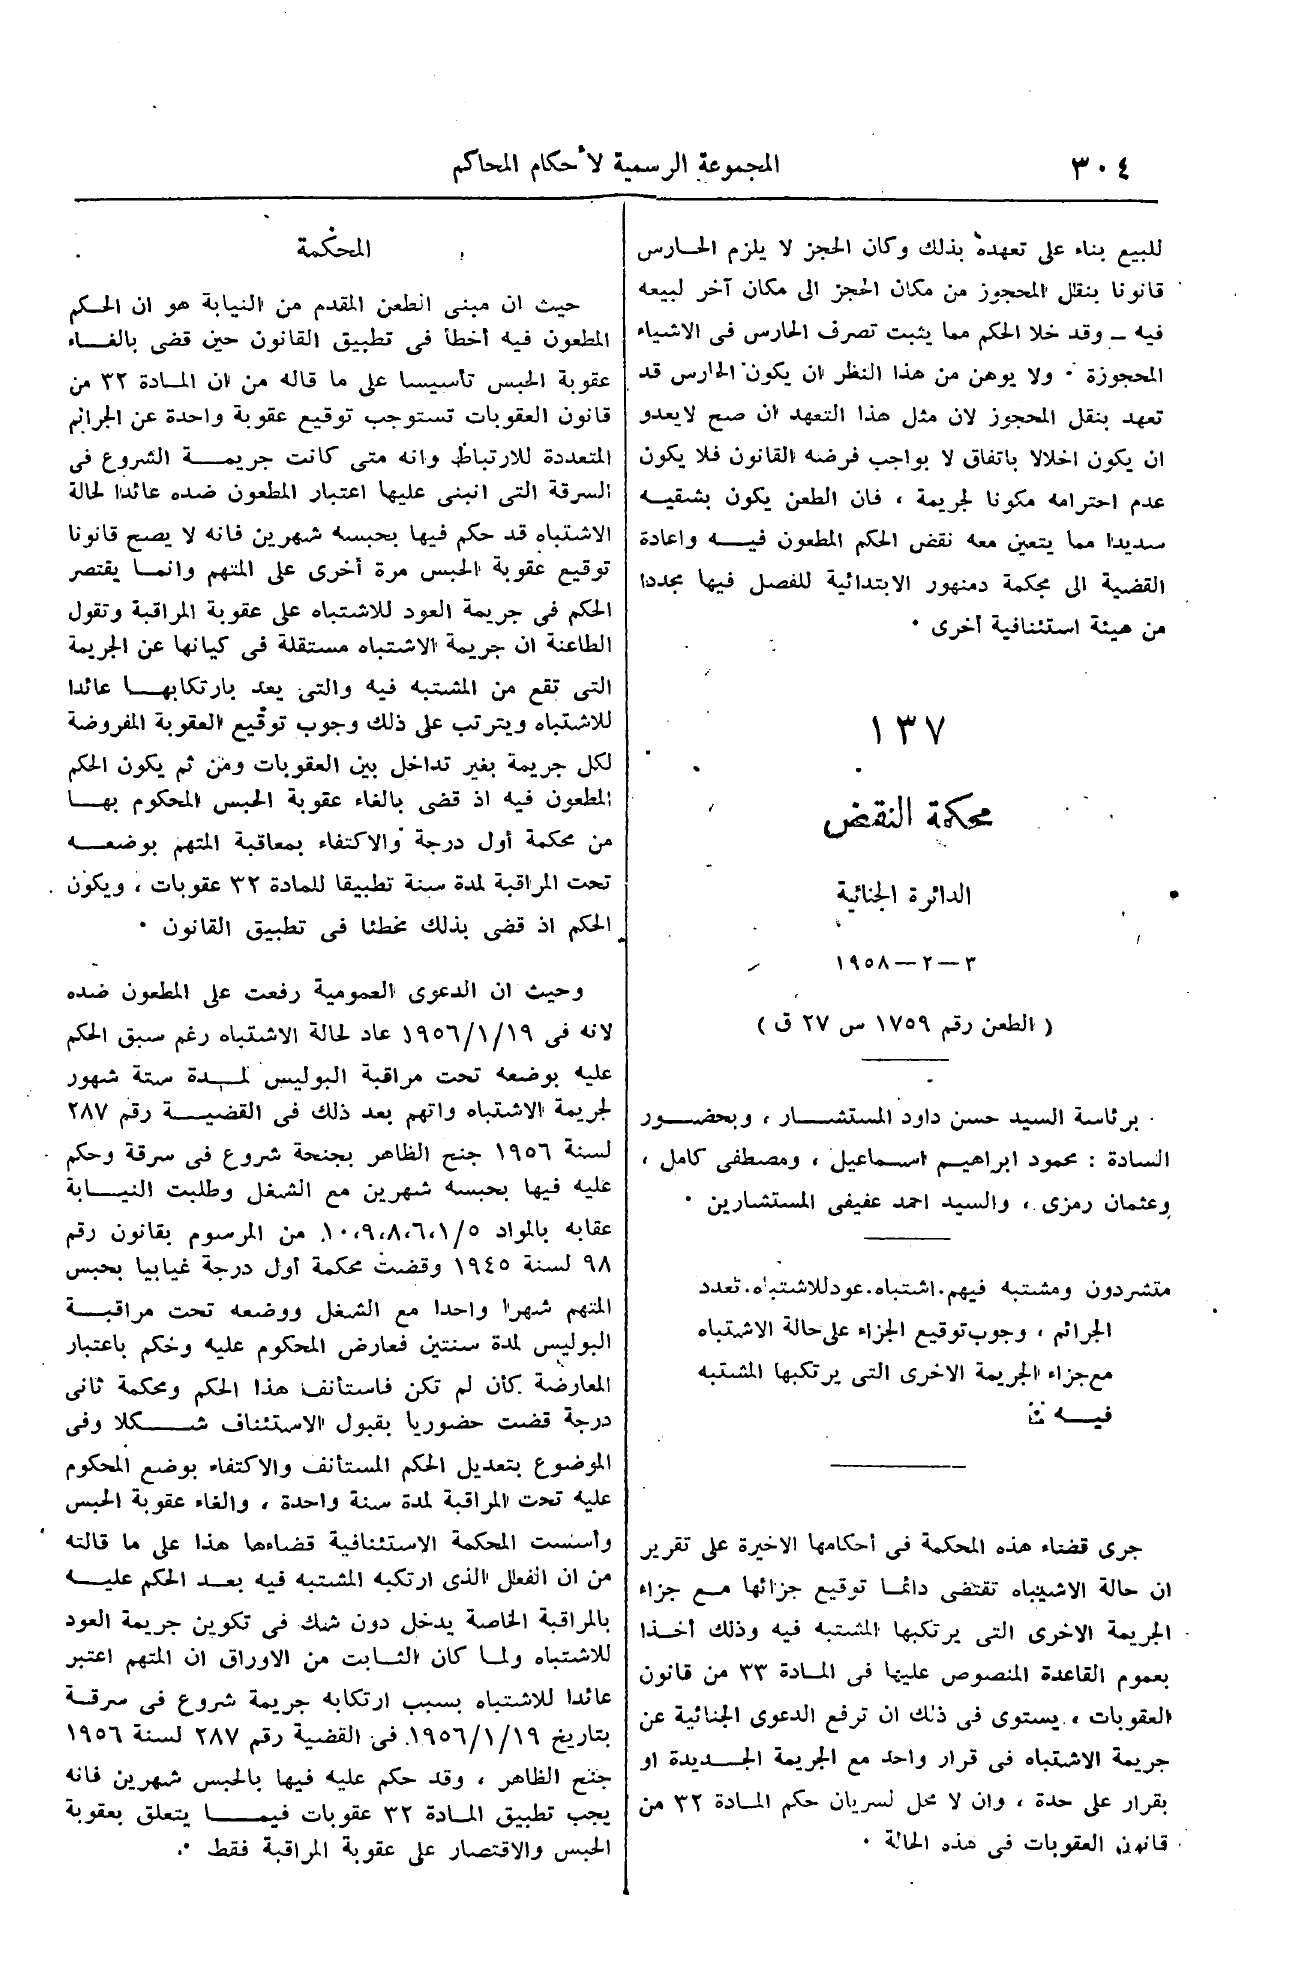 ٣٠٤
المجموعة الرسمية لأحكام المحاكم
للبيع بناء على تعهده بذلك وكان الحجز لا يلزم الحارس
قانونا بنقل المحجوز من مكان الحجز الى مكان آخر لبيعه
فيه ــ وقد خلا الحكم مما يثبت تصرف الحارس فى الاشياء
المحجوزة ٠ ولا يوهن من هذا النظر ان يكون الحارس قد
تعهد بنقل المحجوز لان مثل هذا التعهد ان صح لايعدو
ان يكون اخلالا باتفاق لا بواجب فرضه القانون فلا يكون
عدم احترامه مكونا لجريمة ، فان الطعن يكون بشقيه
سديدا مما يتعين معه نقض الحكم المطعون فيه واعادة
القضية الى محكمة دمنهور الابتدائية للفصل فيها مجددا
من هيئة استئنافية أخرى ٠
١٣٧
محكمة النقض
الدائرة الجنائية
٣ــ٢ــ١٩٥٨
( الطعن رقم ١٧٥٩ س ٢٧ ق )
برئاسة السيد حسن داود المستشار ، وبحضور
السادة : محمود ابراهيم اسماعيل ، ومصطفى كامل ،
وعثمان رمزى ، والسيد احمد عفيفى المستشارين ٠
متشردون ومشتبه فيهم. اشتباه. عود للاشتباه. تعدد
الجرائم ، وجوب توقيع الجزاء على حالة الاشتباه
مع جزاء الجريمة الاخرى التى يرتكبها المشتبه
فيه
جرى قضاء هذه المحكمة فى أحكامها الاخيرة على تقرير
ان حالة الاشتباه تقتضى دائما توقيع جزائها مع جزاء
الجريمة الاخرى التى يرتكبها المشتبه فيه وذلك أخذا
بعموم القاعدة المنصوص عليها فى المادة ٣٣ من قانون
العقوبات ، يستوى فى ذلك ان ترفع الدعوى الجنائية عن
جريمة الاشتباه فى قرار واحد مع الجريمة الجديدة او
بقرار على حدة ، وان لا محل لسريان حكم المادة ٣٢ من
قانون العقوبات فى هذه الحالة ٠
المحكمة
حيث ان مبنى الطعن المقدم من النيابة هو ان الحكم
المطعون فيه أخطأ فى تطبيق القانون حين قضى بالغاء
عقوبة الحبس تأسيسا على ما قاله من ان المادة ٣٢ من
قانون العقوبات تستوجب توقيع عقوبة واحدة عن الجرائم
المتعددة للارتباط وانه متى كانت جريمة الشروع فى
السرقة التى انبنى عليها اعتبار المطعون ضده عائدا لحالة
الاشتباه قد حكم فيها بحبسه شهرين فانه لا يصح قانونا
توقيع عقوبة الحبس مرة أخرى على المتهم وانما يقتصر
الحكم فى جريمة العود للاشتباه على عقوبة المراقبة وتقول
الطاعنة ان جريمة الاشتباه مستقلة فى كيانها عن الجريمة
التى تقع من المشتبه فيه والتى يعد بارتكابها عائدا
للاشتباه ويترتب على ذلك وجوب توقيع العقوبة المفروضة
لكل جريمة بغير تداخل بين العقوبات ومن ثم يكون الحكم
المطعون فيه اذ قضى بالغاء عقوبة الحبس المحكوم بها
من محكمة أول درجة والاكتفاء بمعاقبة المتهم بوضعه
تحت المراقبة لمدة سنة تطبيقا للمادة ٣٢ عقوبات ، ويكون
الحكم اذ قضى بذلك مخطئا فى تطبيق القانون ٠
وحيث ان الدعوى العمومية رفعت على المطعون ضده
لانه فى ١٩٥٦/١/١٩ عاد لحالة الاشتباه رغم سبق الحكم
عليه بوضعه تحت مراقبة البوليس لمدة ستة شهور
لجريمة الاشتباه واتهم بعد ذلك فى القضية رقم ٢٨٧
لسنة ١٩٥٦ جنح الظاهر بجنحة شروع فى سرقة وحكم
عليه فيها بحبسه شهرين مع الشغل وطلبت النيابة
عقابه بالمواد ١/٥،٦،٨،٩،١٠ من المرسوم بقانون رقم
٩٨ لسنة ١٩٤٥ وقضت محكمة أول درجة غيابيا بحبس
المتهم شهرا واحدا مع الشغل ووضعه تحت مراقبة
البوليس لمدة سنتين فعارض المحكوم عليه وحكم باعتبار
المعارضة كأن لم تكن فاستأنف هذا الحكم ومحكمة ثانى
درجة قضت حضوريا بقبول الاستئناف شكلا وفى
الموضوع بتعديل الحكم المستأنف والاكتفاء بوضع المحكوم
عليه تحت المراقبة لمدة سنة واحدة ، والغاء عقوبة الحبس
وأسست المحكمة الاستئنافية قضاءها هذا على ما قالته
من ان الفعل الذى ارتكبه المشتبه فيه بعد الحكم عليه
بالمراقبة الخاصة يدخل دون شك فى تكوين جريمة العود
للاشتباه ولما كان الثابت من الاوراق ان المتهم اعتبر
عائدا للاشتباه بسبب ارتكابه جريمة شروع فى سرقة
بتاريخ ١٩٥٦/١/١٩ فى القضية رقم ٢٨٧ لسنة ١٩٥٦
جنح الظاهر ، وقد حكم عليه فيها بالحبس شهرين فانه
يجب تطبيق المادة ٣٢ عقوبات فيما يتعلق بعقوبة
الحبس والاقتصار على عقوبة المراقبة فقط ٠